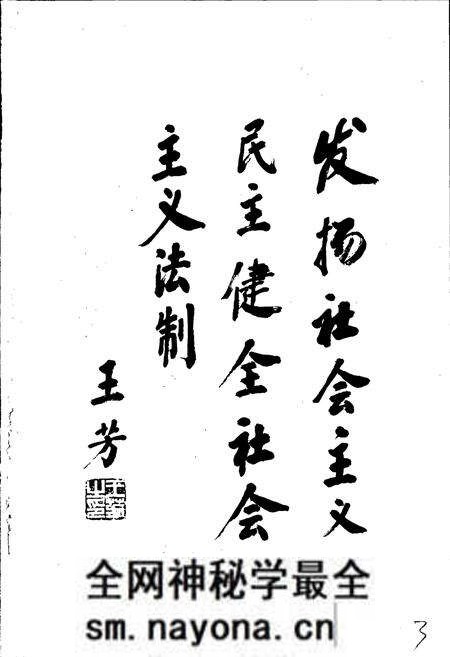 发扬社会主义
民主健全社会
主义法制
王芳
全网神秘学最全
sm.nayona.cn
3